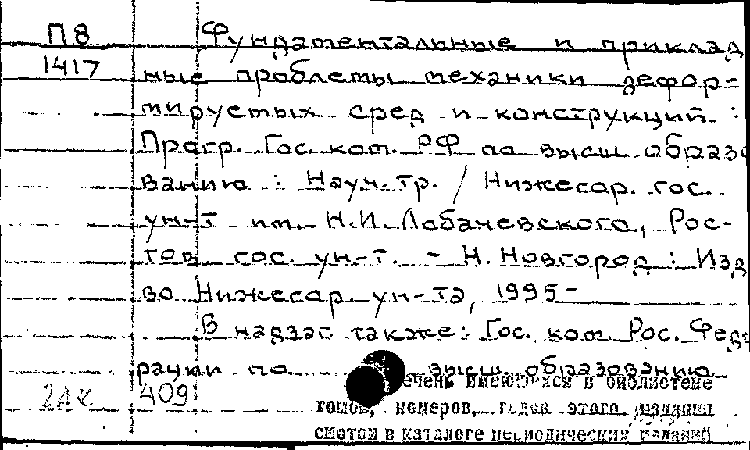 П8 Фундаментальные и приклад
1417 ные проблемы механики дефор-
мируемых сред и конструкций :
Прогр. Гос. ком. РФ по высш. образо
ванию : Науч. тр. / Нижегор. гос.
ун-т им. Н.И. Лобачевского, Рос-
тов. гос. ун-т. – Н. Новгород : Изд
во Нижегор. ун-та, 1995–
В надзаг. также: Гос. ком. Рос. Феде
рации по высш. образованию
409
ечень имеющихся в библиотеке
томов, номеров, годов этого издания
смотри в каталоге периодических изданий